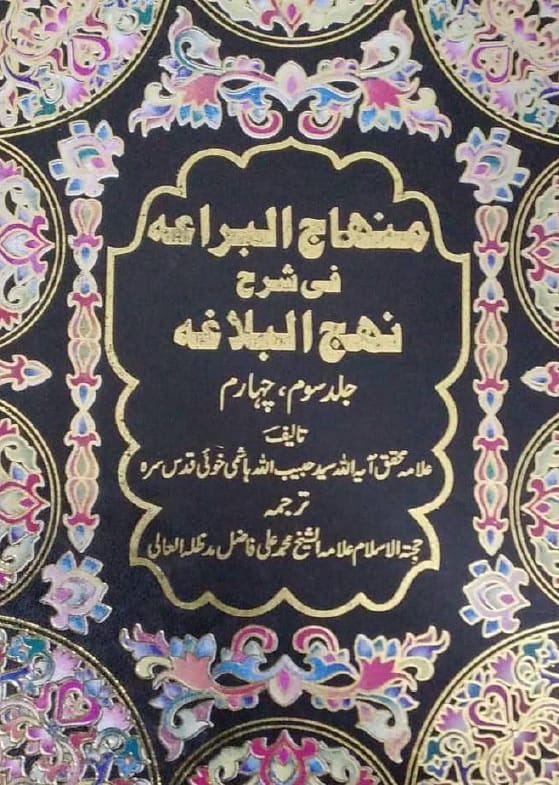 منهاج البراعه
فی شرح
نهج البلاغه
جلد سوم، چہارم
تالیف
علامہ محقق آیۃ اللہ سید حبیب اللہ ہاشمی خوئی قدس سرہ
ترجمہ
حجتہ الاسلام علامہ الشیخ محمد علی فاضل مدظلہ العالی